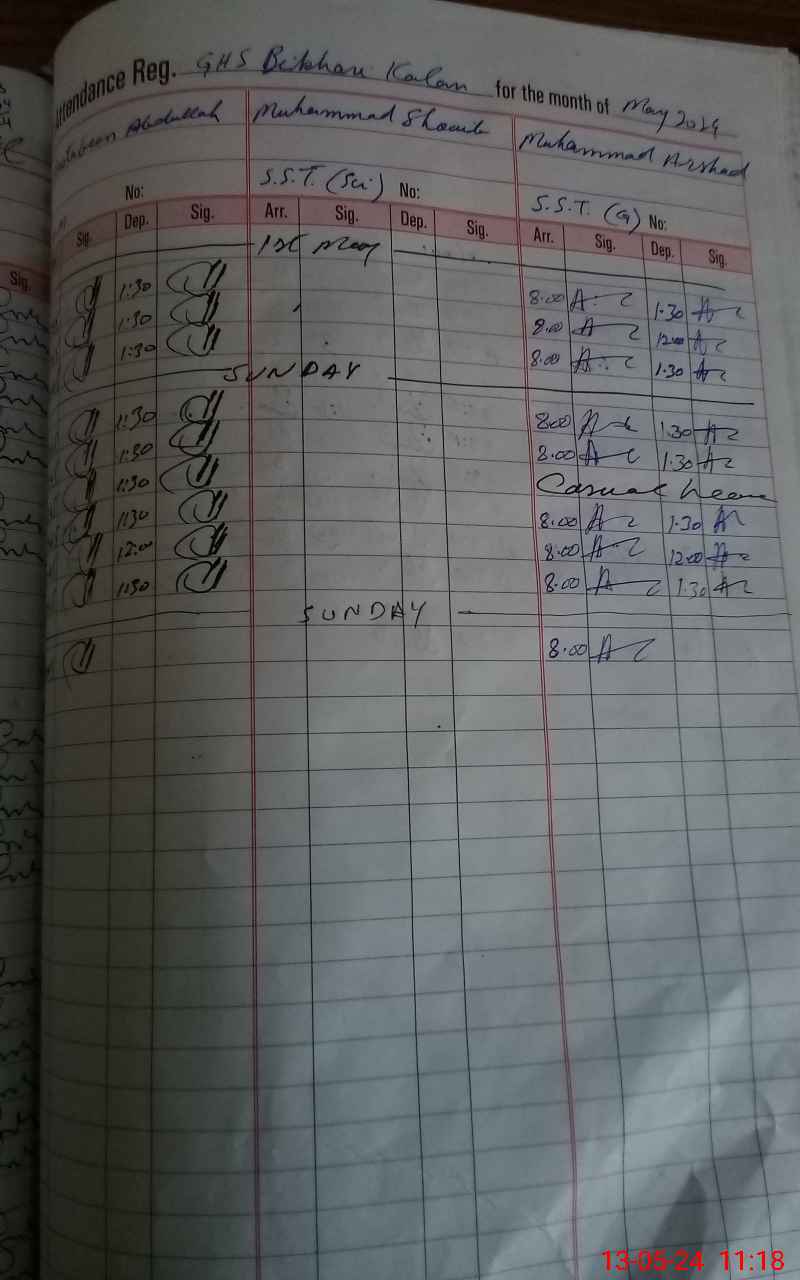 Attendance Reg. GHS Bikhari Kalan for the month of May 2024
Abdullah Muhammad Shoaib Muhammad Arshad
No: S.S.T. (Sci) No: S.S.T. (G) No:
Sig. Dep. Sig. Arr. Sig. Dep. Sig. Arr. Sig. Dep. Sig.
Sig.
1st May
1:30 8.00 1.30
1:30 8.00 12.00
1:30 8.00 1.30
SUNDAY
1:30 8.00 1.30
1:30 8.00 1.30
1:30 Casual Leave
1:30 8.00 1.30
12:00 8.00 12.00
1:30 8.00 1.30
SUNDAY
8.00
13-05-24 11:18